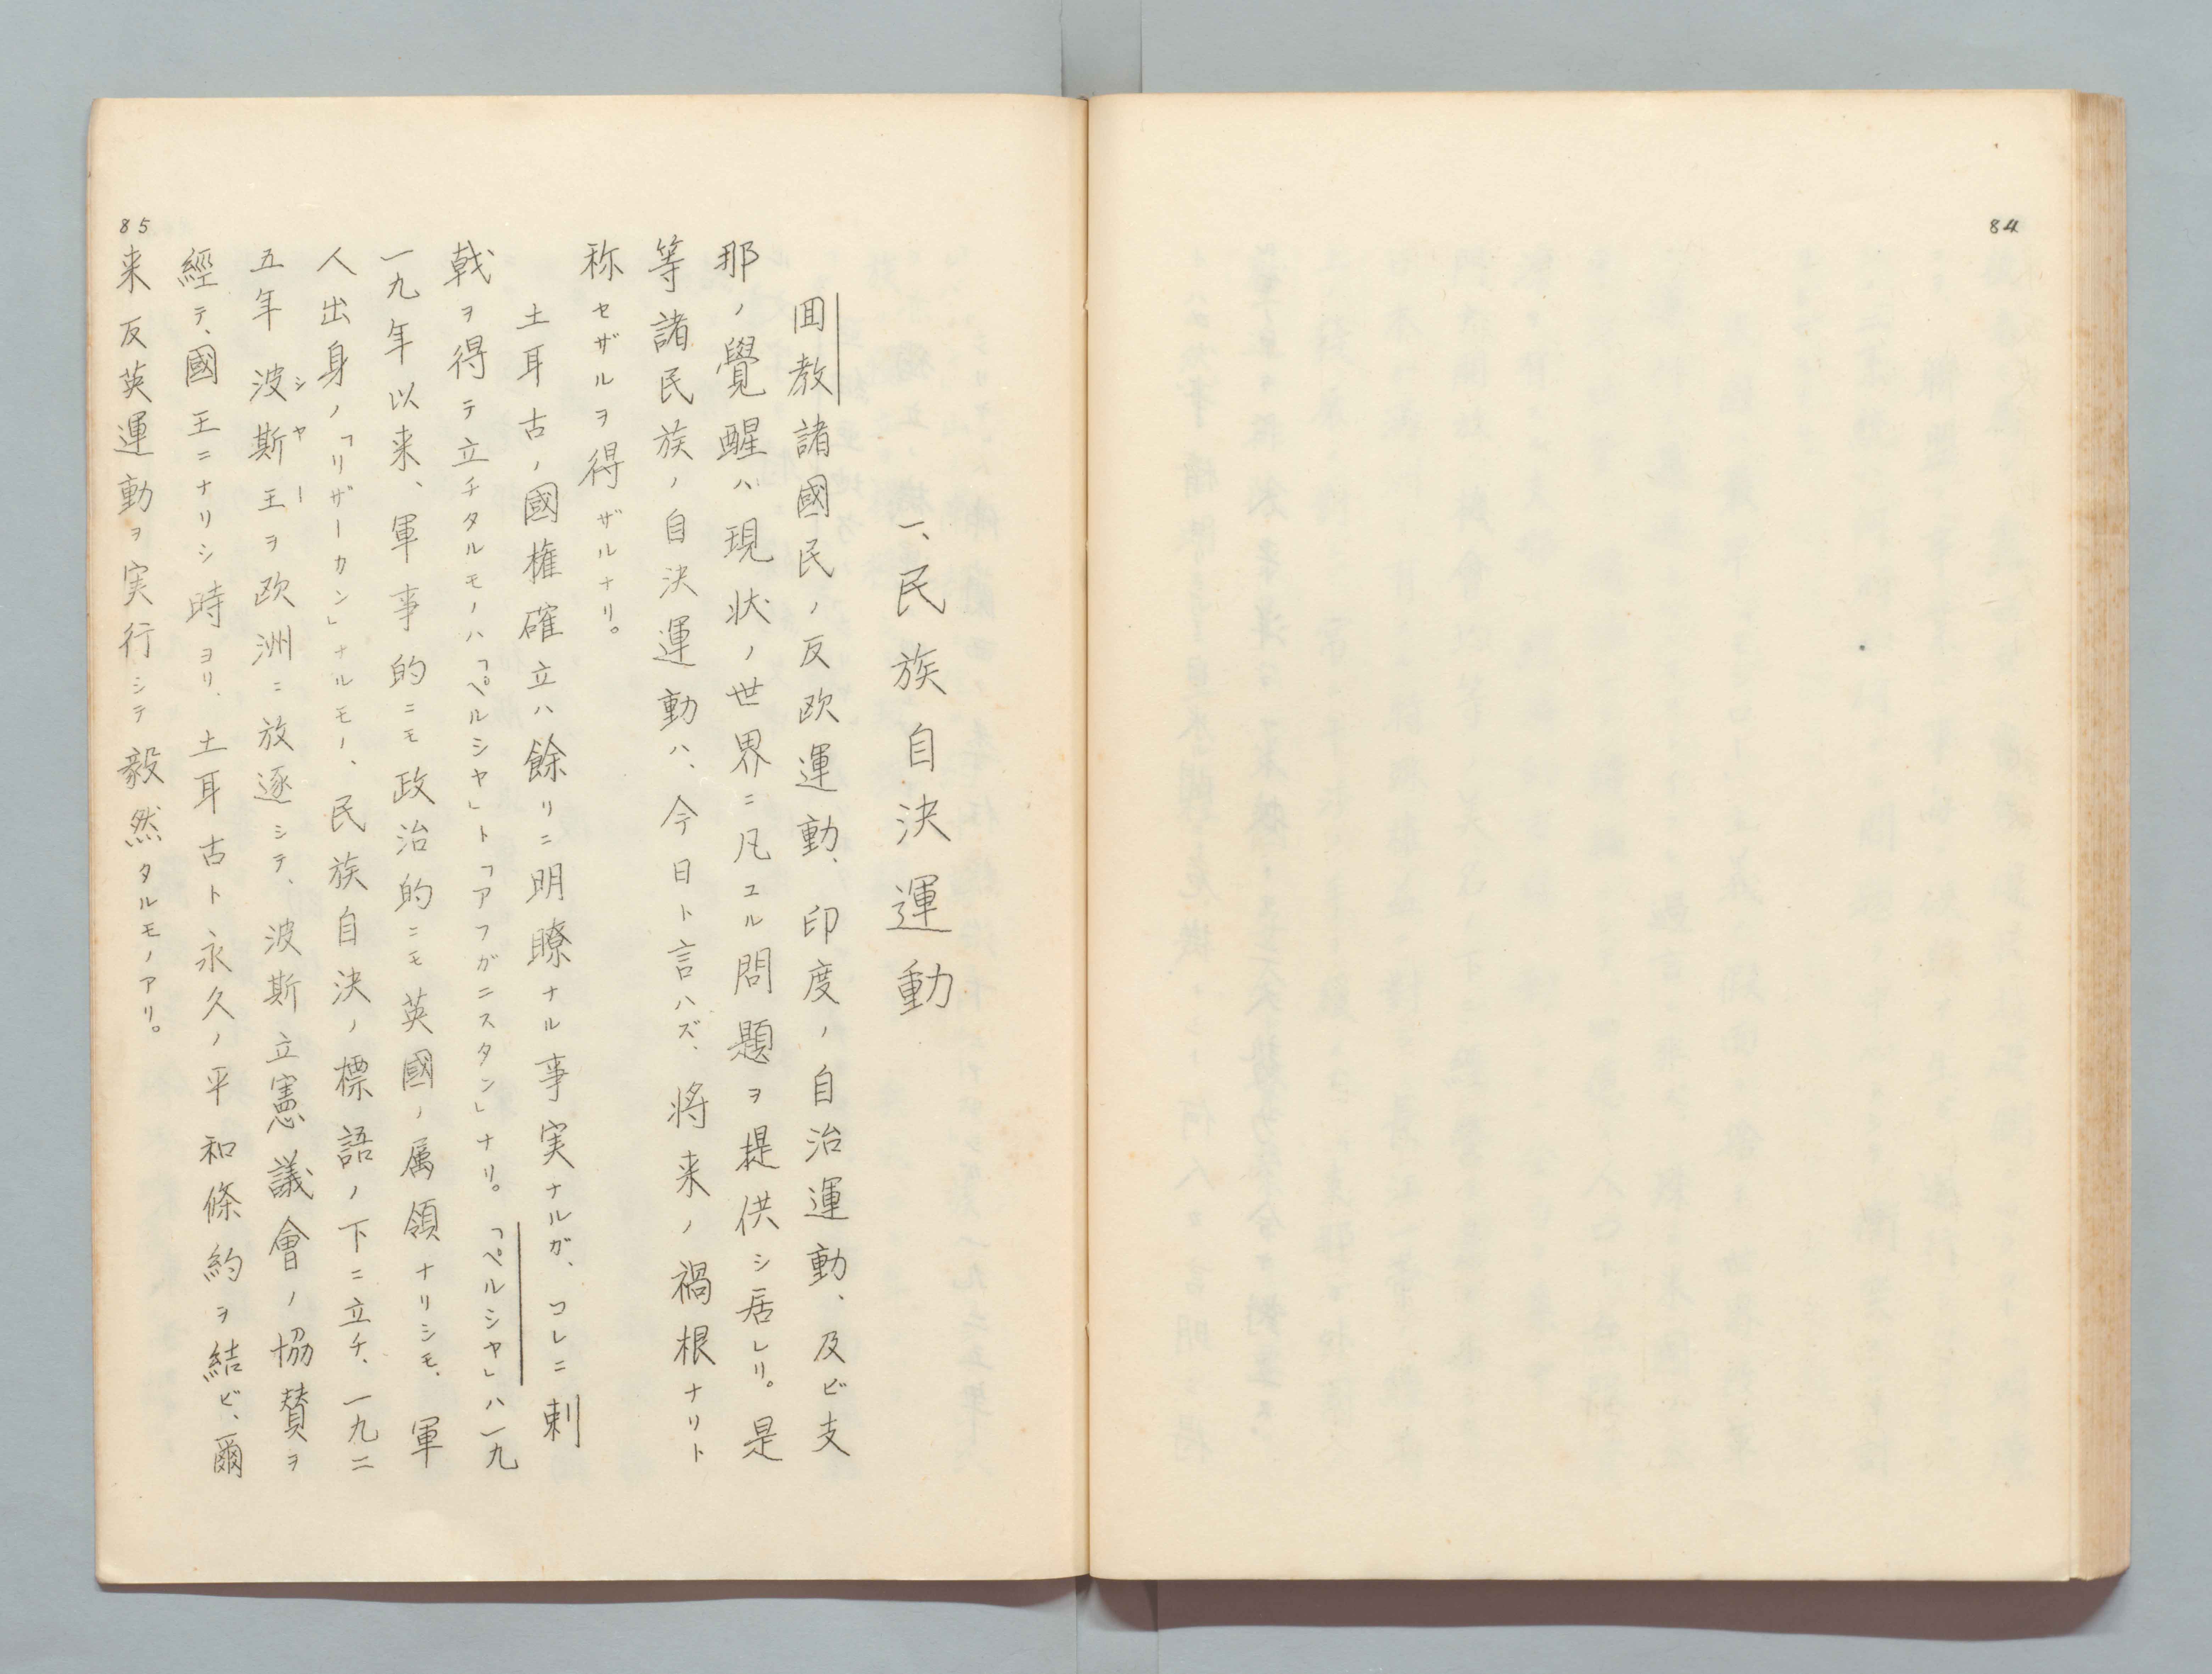 84
一、民族自決運動
囬教諸國民ノ反欧運動、印度ノ自治運動、及ビ支
那ノ覺醒ハ現状ノ世界ニ凡ユル問題ヲ提供シ居レリ。是
等諸民族ノ自決運動ハ、今日ト言ハズ、将来ノ禍根ナリト
称セザルヲ得ザルナリ。
土耳古ノ國権確立ハ餘リニ明瞭ナル事実ナルガ、コレニ刺
戟ヲ得テ立チタルモノハ「ペルシヤ」ト「アフガニスタン」ナリ。「ペルシヤ」ハ一九
一九年以来、軍事的ニモ政治的ニモ英國ノ属領ナリシモ、軍
人出身ノ「リザーカン」ナルモノ、民族自決ノ標語ノ下ニ立チ、一九二
五年波斯王ヲ欧洲ニ放逐シテ、波斯立憲議會ノ協賛ヲ
シヤー
經テ、國王ニナリシ時ヨリ、土耳古ト永久ノ平和條約ヲ結ビ、爾
来反英運動ヲ実行シテ毅然タルモノアリ。
85